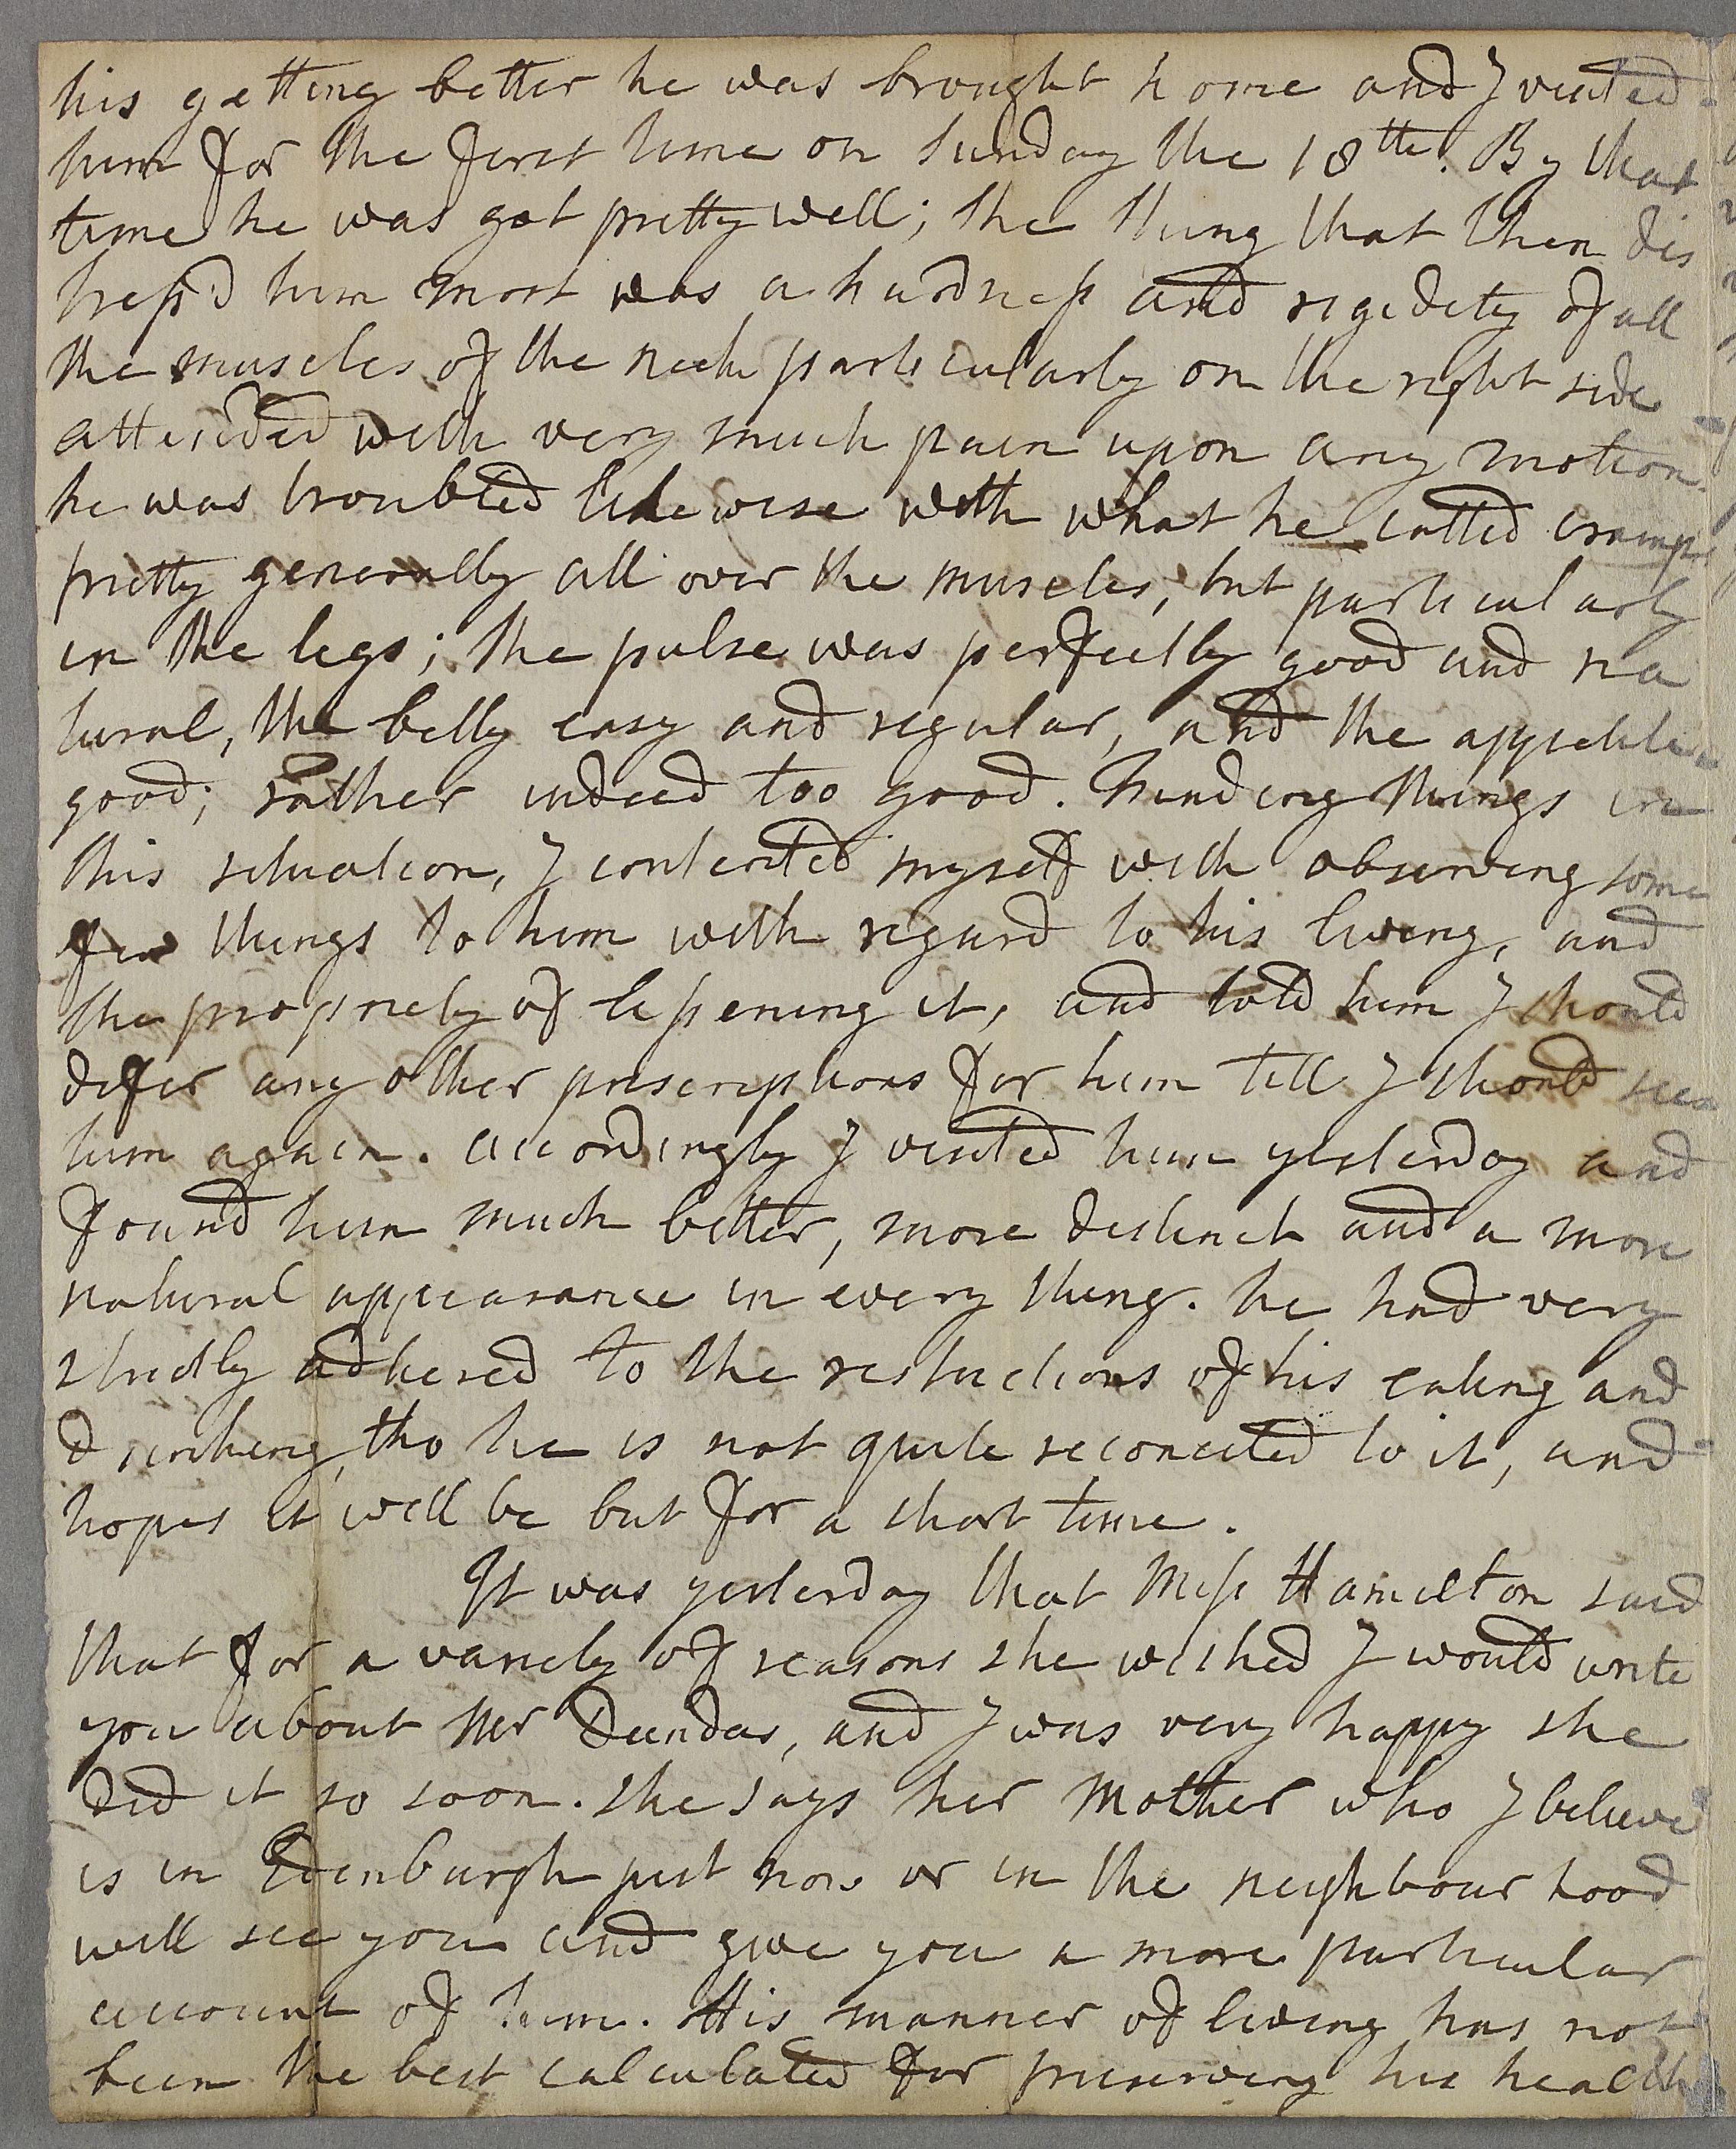 his getting better he was brought home and I visited
him for the first time on Sunday the 18th. By that
time he was got pretty well; the thing that then dis
tress'd him most was a hardness and rigidity of all
the muscles of the neck particularly on the right side
attended with very much pain upon any motion.
he was troubled likewise with what he called cramps
pretty generally all over the muscles, but particularly
in the legs; the pulse was perfectly good and na
tural, the belly easy and regular, and the appetite
good; rather indeed too good. Finding things in
this situation, I contented myself with observing some
few things to him with regard to his living, and
the propriety of lessening it, and told him I should
defer any other prescriptions for him till I should see
him again. Accordingly I visited him yesterday and
found him much better, more distinct and a more
natural appearance in every thing. he had very
strictly adhered to the restrictions of his eating and
drinking, tho he is not quite reconciled to it, and
hopes it will be but for a short time.
It was yesterday that Miss Hamilton said
that for a variety of reasons she wished I would write
you about Mr Dundas, and I was very happy she
did it so soon. She says her Mother who I believe
is in Edinburgh just now or in the neighbour hood
will see you and give you a more particular
account of him. His manner of living has not
been the best calculated for preserving his health